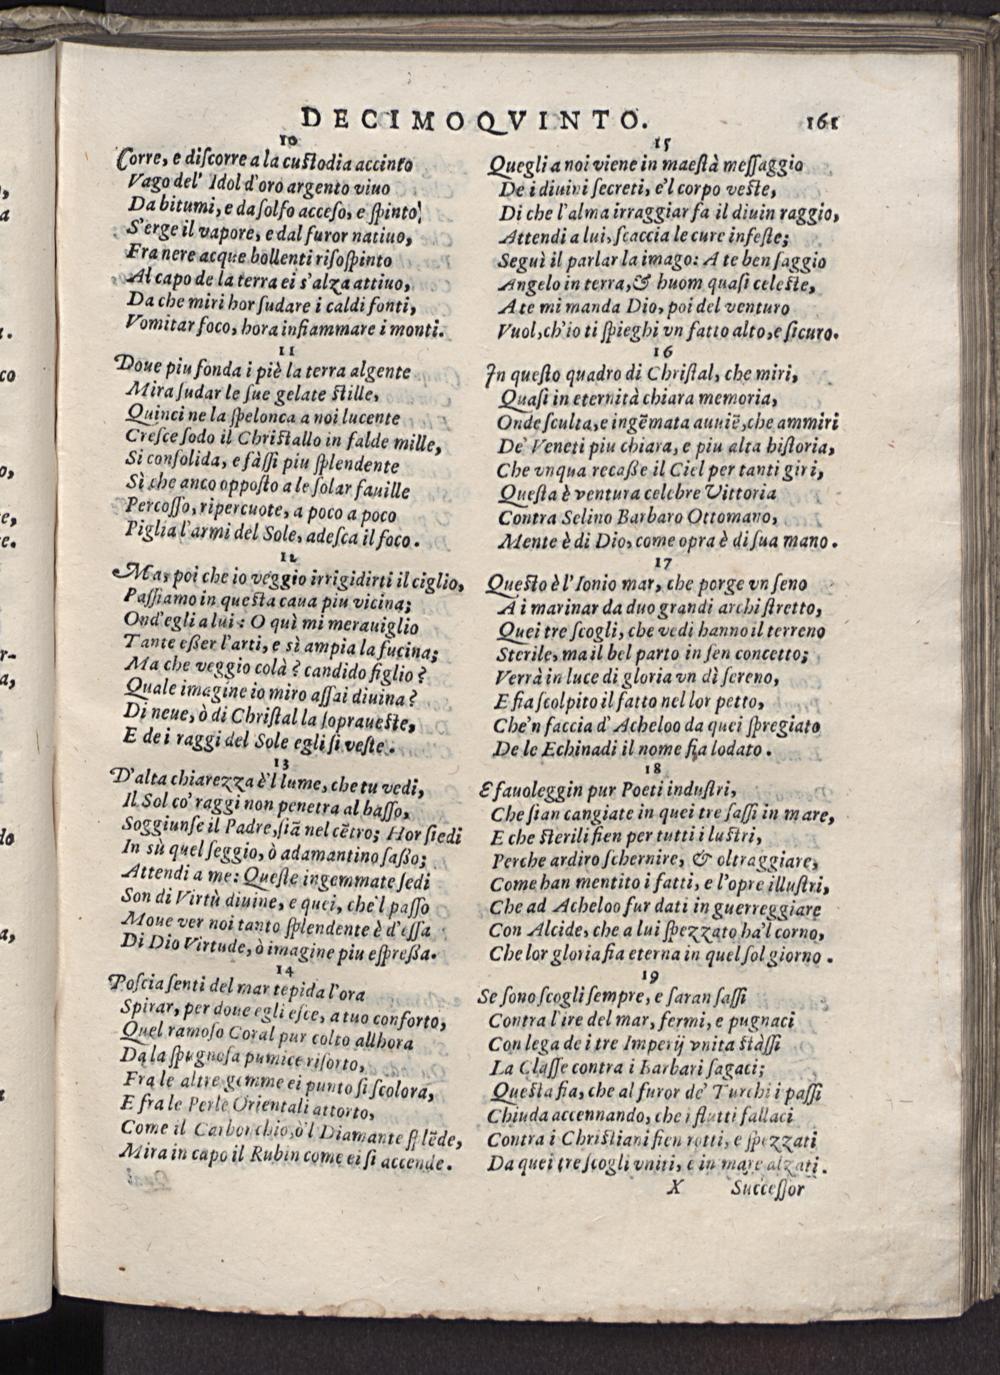 DECIMOQVINTO. 161
10
Corre, e diſcorre a la cuſtodia accinto
Vago del' Idol d'oro argento viuo
Da bitumi, e da ſolfo acceſo, e ſpinto
S'erge il vapore, e dal furor natiuo,
Fra nere acque bollenti riſoſpinto
Al capo de la terra ei s'alza attiuo,
Da che miri hor ſudare i caldi fonti,
Vomitar foco, hora infiammare i monti.
11
Doue piu fonda i piè la terra algente
Mira ſudar le ſue gelate ſtille,
Quinci ne la ſpelonca a noi lucente
Creſce ſodo il Chriſtallo in falde mille,
Si conſolida, e fàſſi piu ſplendente
Sì che anco oppoſto a le ſolar fauille
Percoſſo, ripercuote, a poco a poco
Piglia l'armi del Sole, adeſca il foco.
12
Ma, poi che io veggio irrigidirti il ciglio,
Paſſiamo in queſta caua piu vicina;
Ond'egli a lui: O quì mi merauiglio
Tante eßer l'arti, e sì ampia la fucina;
Ma che veggio colà? candido figlio?
Quale imagine io miro aſſai diuina?
Di neue, ò di Chriſtal la ſoprauеſte,
E de i raggi del Sole egli ſi veſte.
13
D'alta chiarezza è'l lume, che tu vedi,
Il Sol co' raggi non penetra al baſſo,
Soggiunſe il Padre, ſiã nel cẽtro; Hor ſiedi
In sù quel ſeggio, ò adamantino ſaßo;
Attendi a me: Queſte ingemmate ſedi
Son di Virtù diuine, e quei, che'l paſſo
Moue ver noi tanto ſplendente è d'eſſa
Di Dio Virtude, ò imagine piu eſpreßa.
14
Poſcia ſenti del mar tepida l'ora
Spirar, per doue egli eſce, a tuo conforto,
Quel ramoſo Coral pur colto allhora
Da la ſpugnoſa pumice riſorto,
Fra le altre gemme ei punto ſi ſcolora,
E fra le Perle Orientali attorto,
Come il Carbonchio, ò'l Diamante ſplẽde,
Mira in capo il Rubin come ei ſi accende.
15
Quegli a noi viene in maeſtà meſſaggio
De i diuini ſecreti, e'l corpo veſte,
Di che l'alma irraggiar fa il diuin raggio,
Attendi a lui, ſcaccia le cure infeſte;
Seguì il parlar la imago: A te ben ſaggio
Angelo in terra, & huom quaſi celeſte,
A te mi manda Dio, poi del venturo
Vuol, ch'io ti ſpieghi vn fatto alto, e ſicuro.
16
In queſto quadro di Chriſtal, che miri,
Quaſi in eternità chiara memoria,
Onde ſculta, e ingẽmata auuiẽ, che ammiri
De' Veneti piu chiara, e piu alta hiſtoria,
Che vnqua recaße il Ciel per tanti giri,
Queſta è ventura celebre Vittoria
Contra Selino Barbaro Ottomano,
Mente è di Dio, come opra è di ſua mano.
17
Queſto è l'Ionio mar, che porge vn ſeno
A i marinar da duo grandi archi ſtretto,
Quei tre ſcogli, che vedi hanno il terreno
Sterile, ma il bel parto in ſen concetto;
Verrà in luce di gloria vn dì ſereno,
E fia ſcolpito il fatto nel lor petto,
Che'n faccia d'Acheloo da quei ſpregiato
De le Echinadi il nome fia lodato.
18
E fauoleggin pur Poeti induſtri,
Che ſian cangiate in quei tre ſaſſi in mare,
E che ſterili fien per tutti i luſtri,
Perche ardiro ſchernire, & oltraggiare,
Come han mentito i fatti, e l'opre illuſtri,
Che ad Acheloo fur dati in guerreggiare
Con Alcide, che a lui ſpezzato ha'l corno,
Che lor gloria fia eterna in quel ſol giorno.
19
Se ſono ſcogli ſempre, e ſaran ſaſſi
Contra l'ire del mar, fermi, e pugnaci
Con lega de i tre Imperij vnita ſtàſſi
La Claſſe contra i Barbari ſagaci;
Queſta fia, che al furor de' Turchi i paſſi
Chiuda accennando, che i flutti fallaci
Contra i Chriſtiani fien rotti, e ſpezzati
Da quei tre ſcogli vniti, e in mare alzati.
X Succeſſor